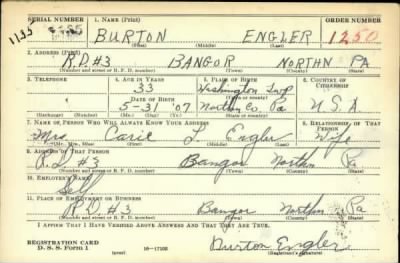 SERIAL NUMBER 1. NAME (Print) ORDER NUMBER
1155 BURTON ENGLER 1250
(First) (Middle) (Last)
2. ADDRESS (Print)
R.D #3 BANGOR NORTHN PA
(Number and street or R. F. D. number) (Town) (County) (State)
3. TELEPHONE 4. AGE IN YEARS 5. PLACE OF BIRTH 6. COUNTRY OF CITIZENSHIP
33 Washington Twp
DATE OF BIRTH
5-31 '07 Northn Co. Pa U.S.A
7. NAME OF PERSON WHO WILL ALWAYS KNOW YOUR ADDRESS 8. RELATIONSHIP OF THAT PERSON
Mrs Carie L Engler Wife
(Mr., Mrs., Miss) (First) (Middle) (Last)
9. ADDRESS OF THAT PERSON
R.D #3 Bangor Northn Pa
(Number and street or R. F. D. number) (Town) (County) (State)
10. EMPLOYER'S NAME
Self
11. PLACE OF EMPLOYMENT OR BUSINESS
R.D #3 Bangor Northn Pa
(Number and street or R. F. D. number) (Town) (County) (State)
I AFFIRM THAT I HAVE VERIFIED ABOVE ANSWERS AND THAT THEY ARE TRUE.
REGISTRATION CARD
D. S. S. Form 1 16-17105 Burton Engler
(over) (Registrant's signature)